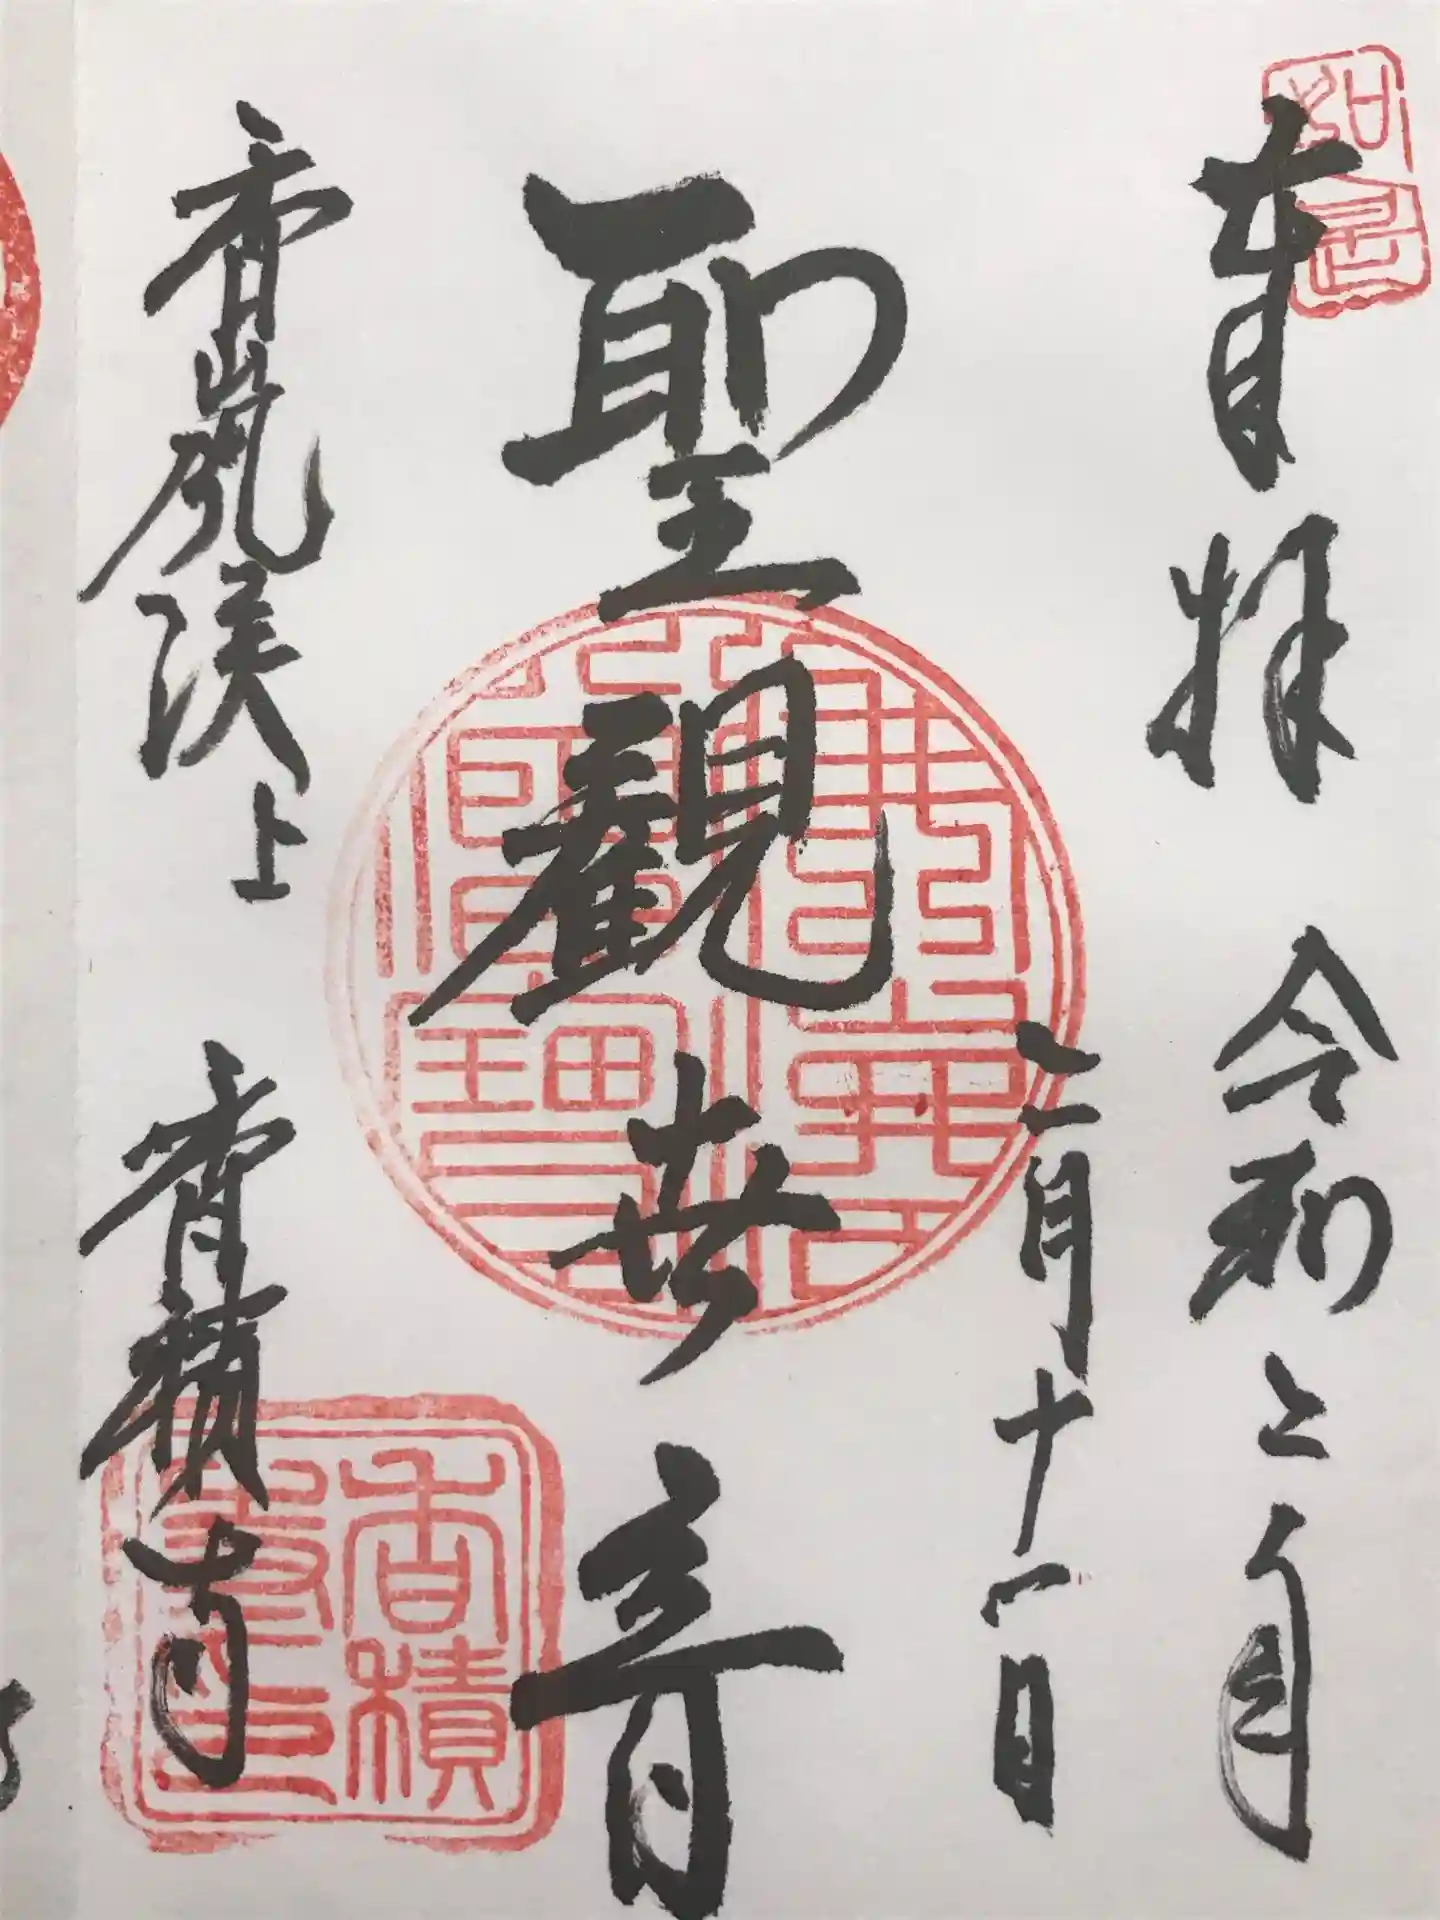 如是
奉拝 令和二年
月十一日
聖觀世音
香嵐渓上 香積寺
香積